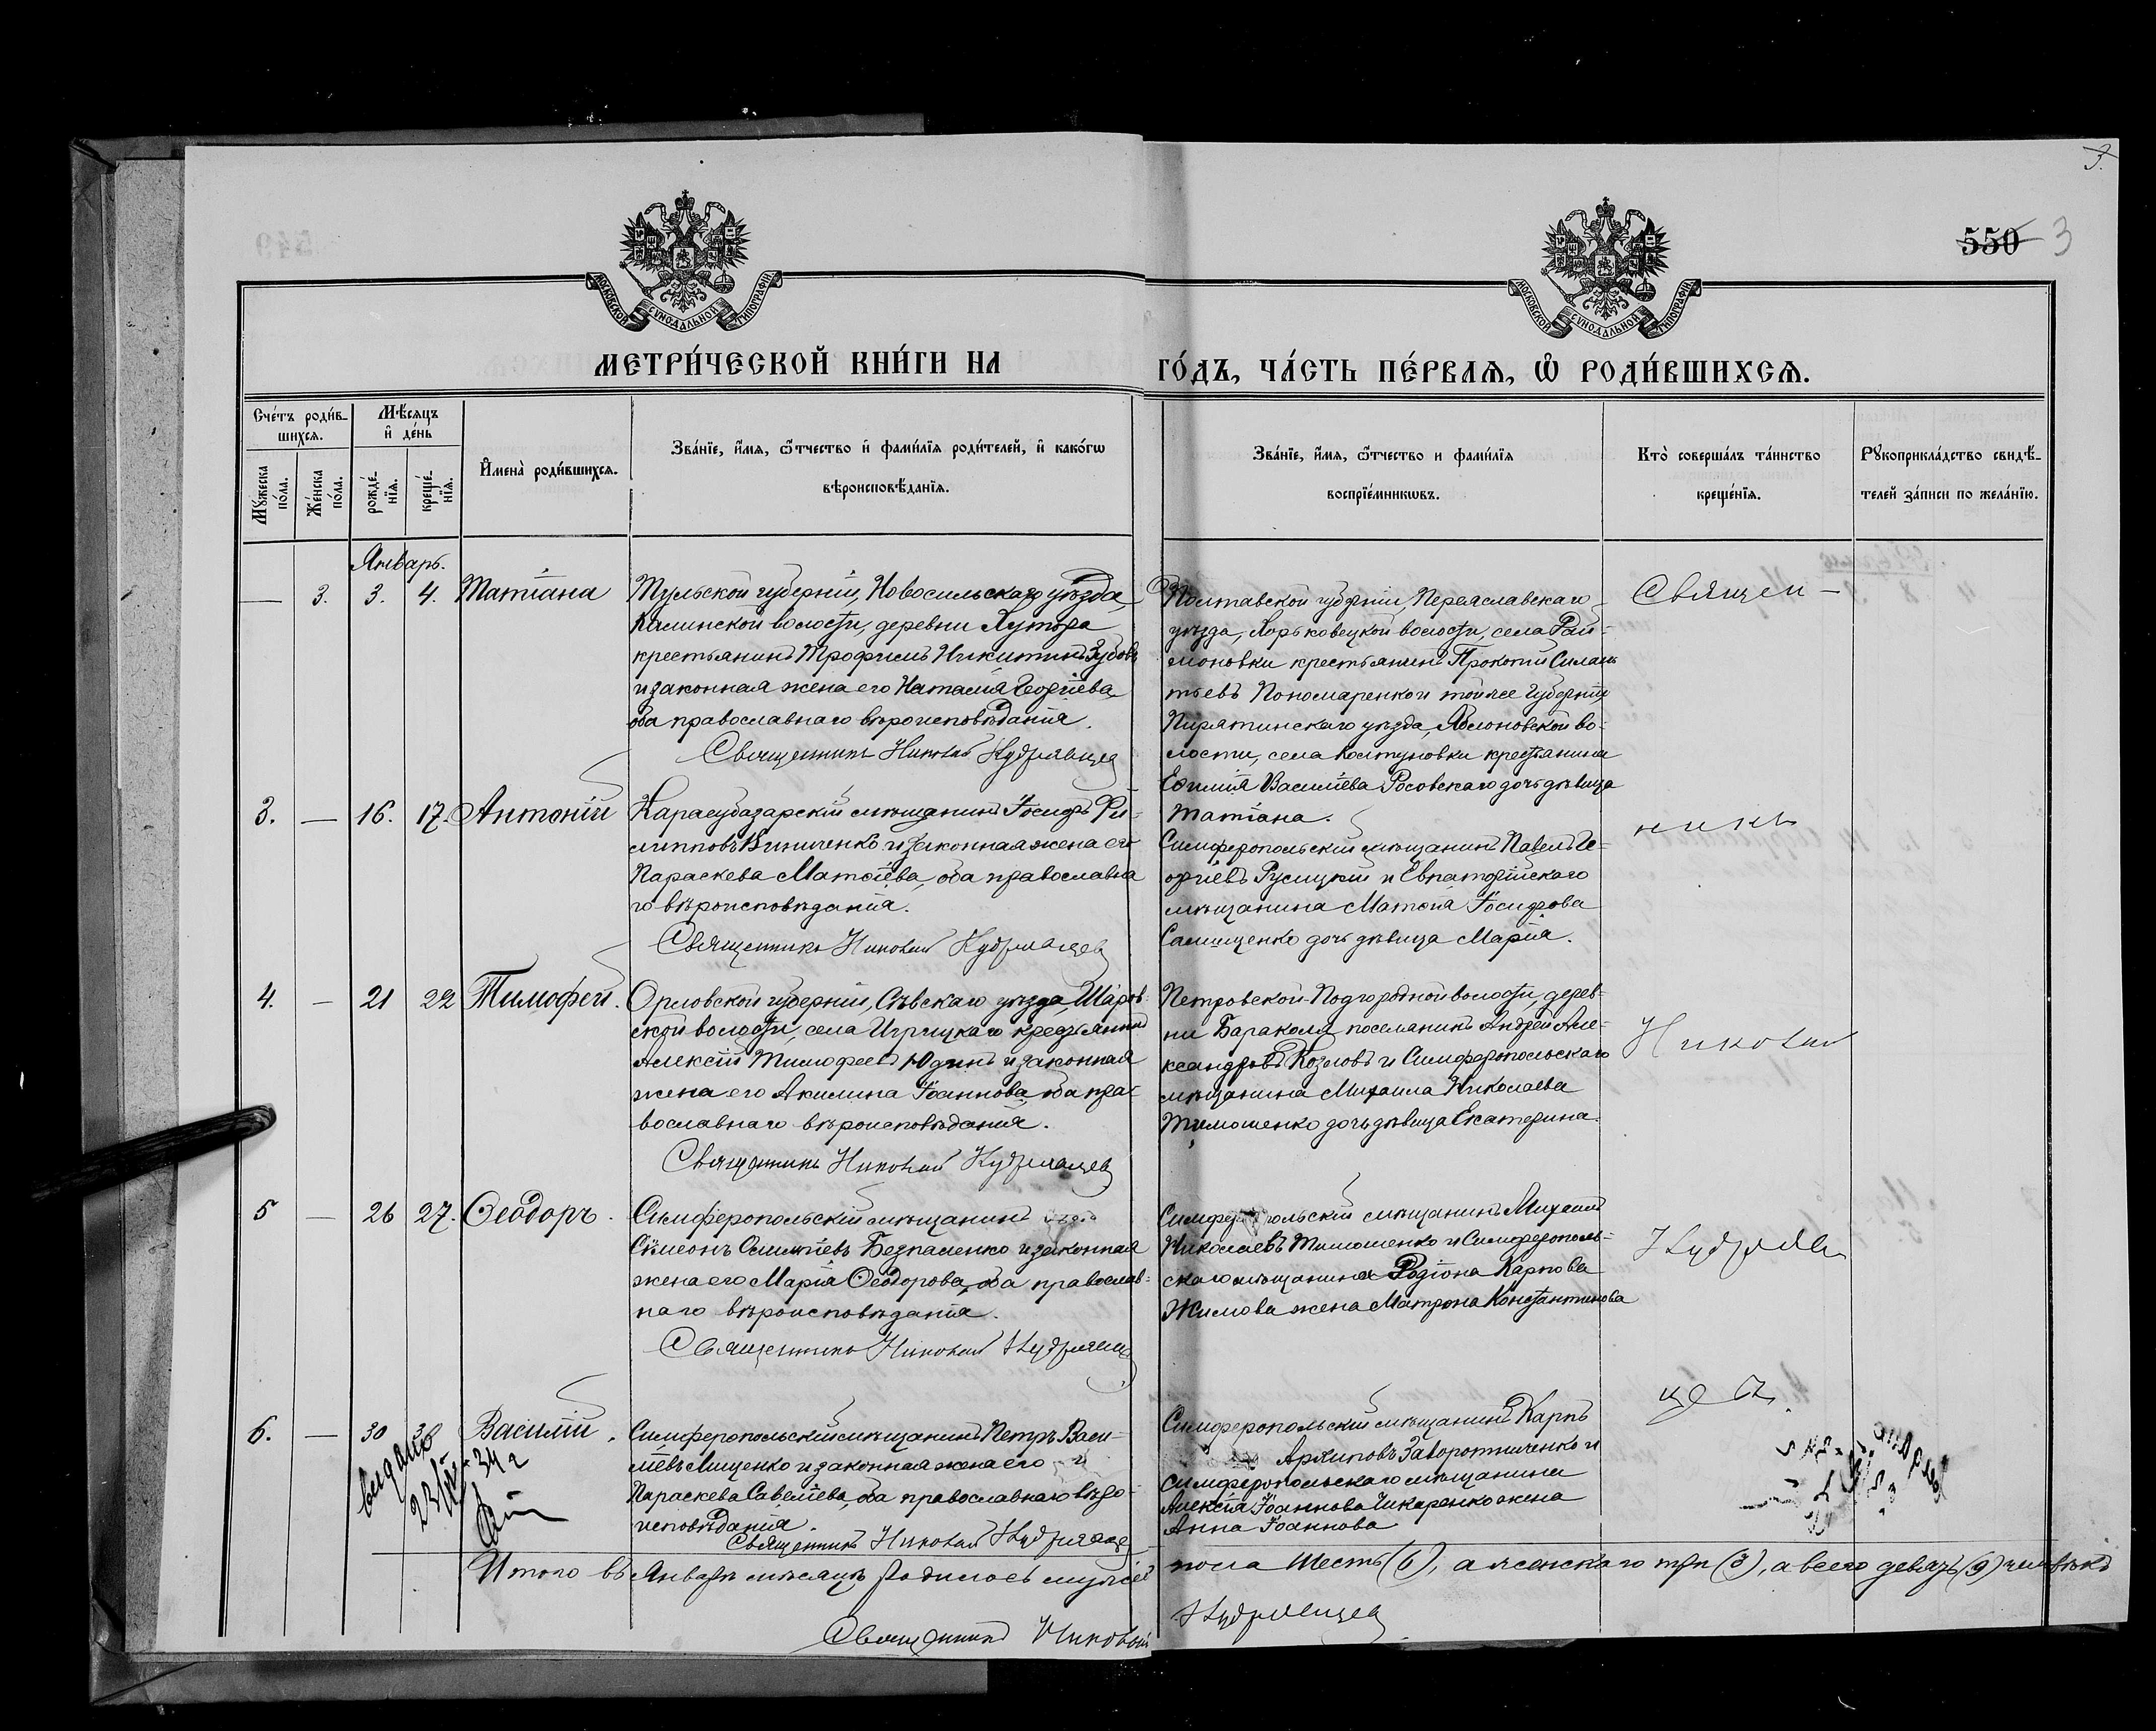 3.
550 3
МОСКОВСКОЙ СУНОДАЛЬНОЙ ТИПОГРАФІИ
МОСКОВСКОЙ СУНОДАЛЬНОЙ ТИПОГРАФІИ
МЕТРИ́ЧЕСКОЙ КНИ́ГИ НА ГО́ДЪ, ЧА́СТЬ ПЕ́РВАЯ, Ѡ҆ РОДИ́ВШИХСЯ.
Сче́тъ роди́в-
шихся.
Мѣ́сяцъ
и҆ де́нь
Мꙋ́жеска
по́ла.
Же́нска
по́ла.
рожде́-
нїя.
креще́-
нїя.
И҆мена̀ роди́вшихся.
Зва́нїе, и҆́мя, ѻ҆́тчество и҆ фами́лїя роди́телей, и҆ како́гѡ
вѣроисповѣ́данїя.
Зва́нїе, и҆́мя, ѻ҆́тчество и фами́лїя
воспрїе́мникѡвъ.
Кто̀ соверша́лъ та́инство
креще́нїя.
Рꙋкоприкла́дство свидѣ́-
телей за́писи по жела́нїю.
Январь.
— 3. 3. 4. Татіана
Тульской губерніи, Новосильскаго уѣзда,
волости, деревни Хутора
крестьянинъ Трофимъ Никитинъ Зубовъ
и законная жена его Наталія Георгіева,
оба православнаго вѣроисповѣданія.
Священникъ Николай Кудрявцев
Полтавской губерніи, Переяславскаго
уѣзда, волости, села
крестьянинъ Прокопій Силан
тьевъ Пономаренко и той же губерніи,
Пирятинскаго уѣзда, Яблоновской во-
лости, села крестьянина
Васильева Росовскаго дочь дѣвица
Татіана.
3. — 16. 17. Антоній
Карасубазарскій мѣщанинъ Іосифъ Фи-
липповъ Виниченко и законная жена его
Параскева Матѳіева, оба православна
го вѣроисповѣданія.
Священникъ Николай Кудрявцев
Симферопольскій мѣщанинъ Павелъ Ге-
оргіевъ Русицкій и Евпаторійскаго
мѣщанина Матѳія Іосифова
дочь дѣвица Марія.
4. — 21 22 Тимофей.
Орловской губерніи, Сѣвскаго уѣзда,
ской волости, села Игрицкаго крестьянинъ
Алексій Тимофеевъ Юдинъ и законная
жена его Акилина Іоаннова, оба пра-
вославнаго вѣроисповѣданія.
Священникъ Николай Кудрявцев
Петровской-Подгородной волости, дерев-
ни поселянинъ Андрей Але-
ксандровъ Козловъ и Симферопольскаго
мѣщанина Михаила Николаева
Тимошенко дочь дѣвица Екатерина.
5 — 26 27. Ѳеодоръ.
Симферопольскій мѣщанинъ
Сѵмеонъ Безпаленко и законная
жена его Марія Ѳеодорова, оба православ-
наго вѣроисповѣданія.
Священникъ Николай Кудрявцев
Симферопольскій мѣщанинъ Михаилъ
Николаевъ Тимошенко и Симферополь-
скаго мѣщанина Родіона Карпова
Жилова жена Матрона Константинова
6. — 30 30 Василій.
Симферопольскій мѣщанинъ Петръ Васи-
ліевъ Лищенко и законная жена его
Параскева Савеліева, оба православнаго вѣро-
исповѣданія.
Священникъ Николай Кудрявцев
Симферопольскій мѣщанинъ Карпъ
Архиповъ Заворотниченко и
симферопольскаго мѣщанина
Алексія Іоаннова Чикаренко жена
Анна Іоаннова
Священ-
никъ
Николай
Кудряв
цевъ.
выдано
34 г
Итого въ Январѣ мѣсяцѣ родилось мужск пола шесть (6), а женскаго три (3), а всего девять (9) человѣкъ
Священникъ Николай Кудрявцев